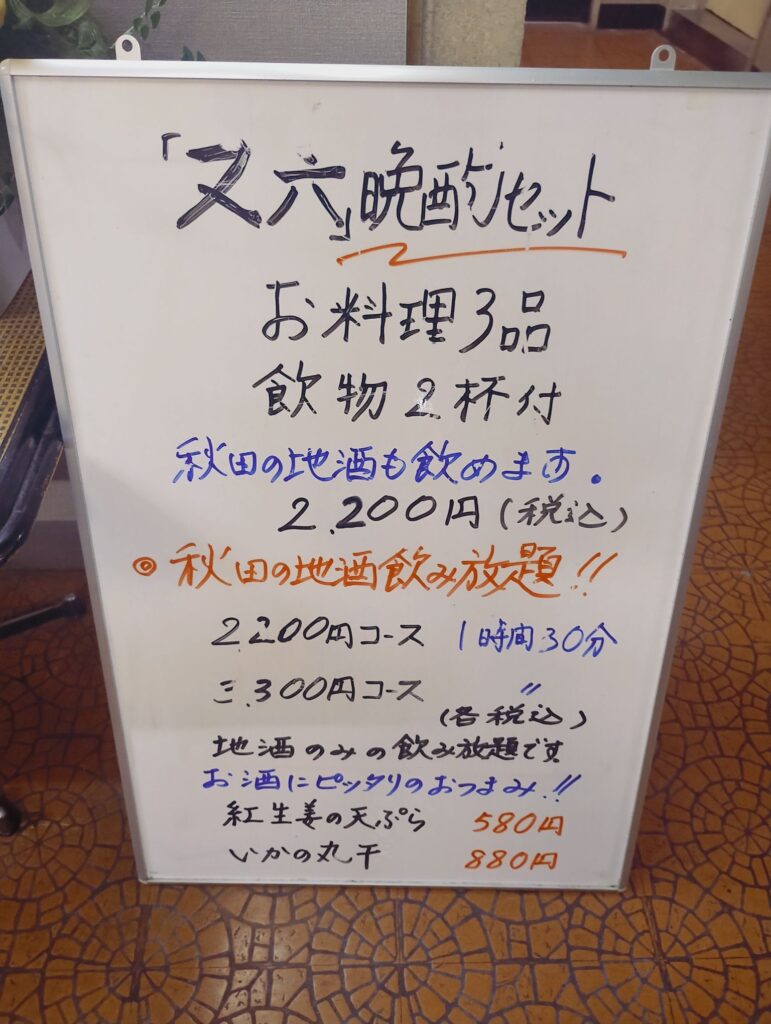 「又六」晩酌セット
お料理3品
飲物2杯付
秋田の地酒も飲めます。
2,200円(税込)
◎秋田の地酒飲み放題!!
2,200円コース 1時間30分
3,300円コース 〃
(各税込)
地酒のみの飲み放題です
お酒にピッタリのおつまみ!!
紅生姜の天ぷら 580円
いかの丸干 880円